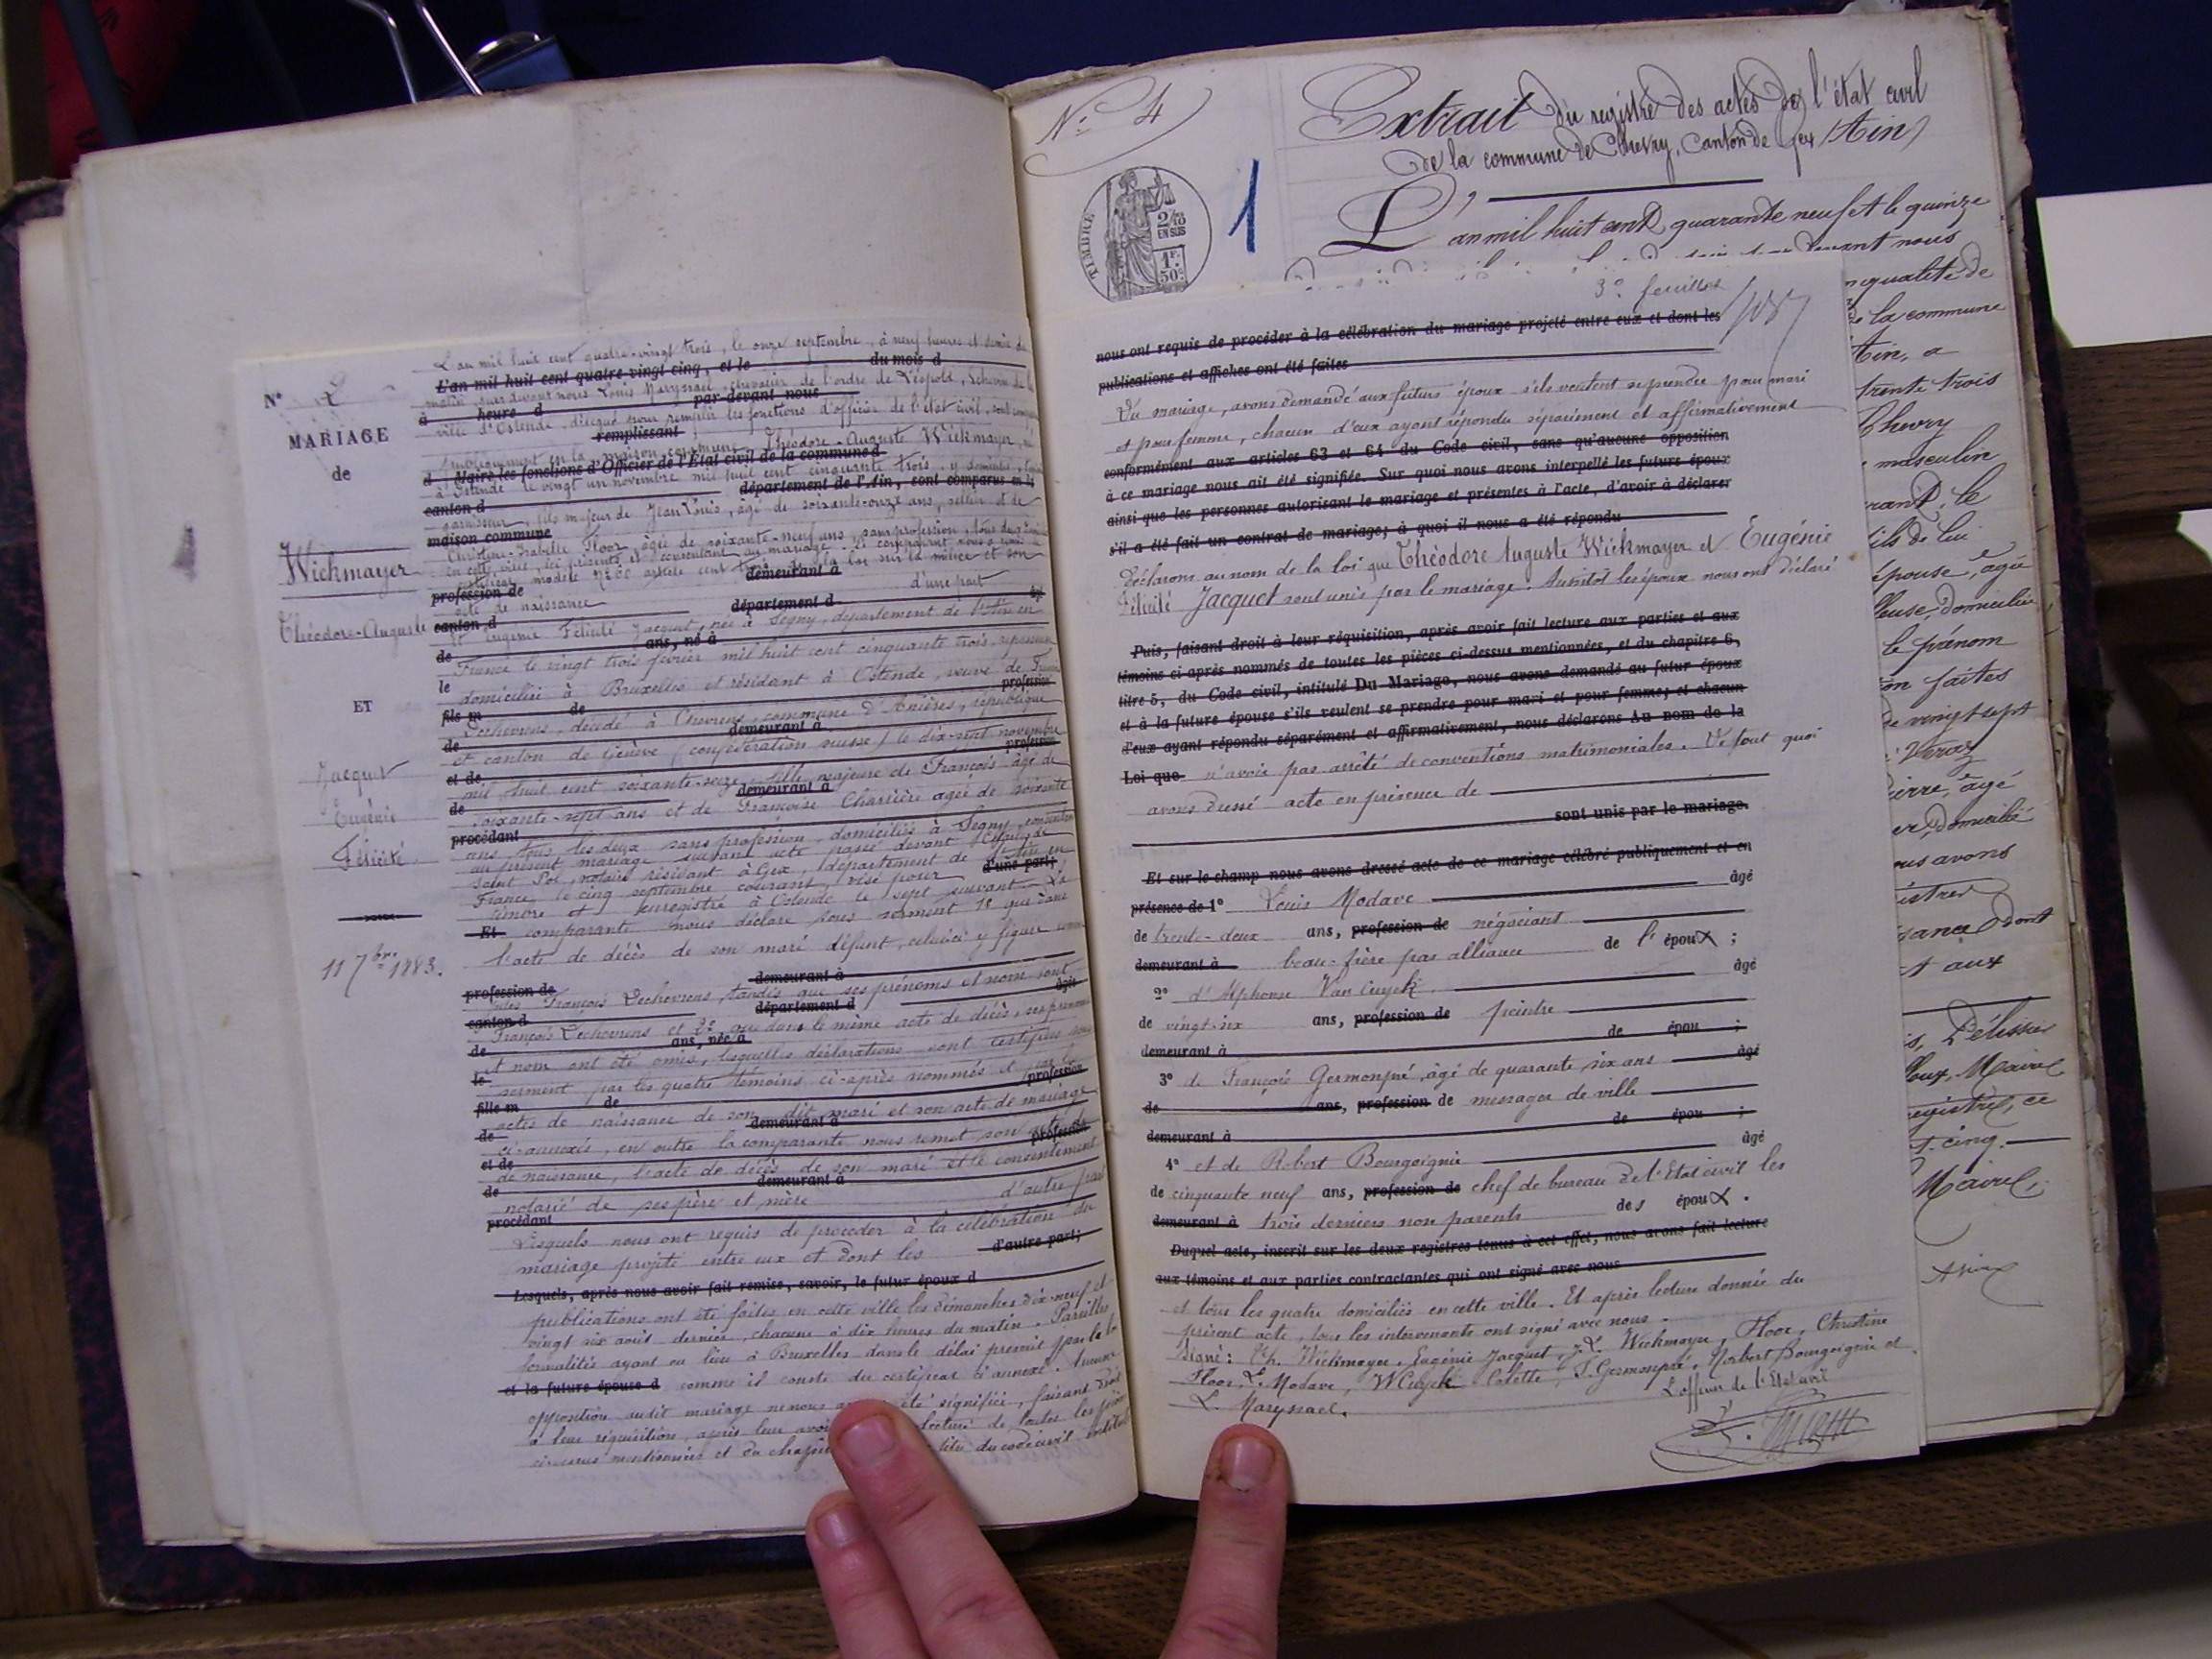 N° 2
MARIAGE
de
Wickmayer
Théodore-Auguste
ET
Jacquet
Eugénie
Félicité
11 7bre 1883.
L'an mil huit cent quatre-vingt trois, le onze septembre, à neuf heures et demie du
L'an mil huit cent quatre-vingt cinq, et le du mois d
matin, par devant nous Louis Marysael, chevalier de l'ordre de Léopold, Echevin de la
à heure d par-devant nous
ville d'Ostende, délégué pour remplir les fonctions d'officier de l'état civil, sont comparus
remplissant
publiquement en la maison commune Théodore-Auguste Wickmayer, né
d Maire les fonctions d'Officier de l'État civil de la commune d
à Ostende le vingt un novembre mil huit cent cinquante trois, y domicilié,
canton d département de l'Ain, sont comparus en la
garnisseur, fils majeur de Jean Louis, âgé de soixante-onze ans, sellier et de
maison commune
Christine-Isabelle Floor, âgée de soixante-neuf ans, sans profession, tous deux
en cette ville, ici présents et consentant au mariage. Le comparant nous a remis
certificat modèle article cent de la loi sur la milice et son
profession de demeurant à
acte de naissance d'une part
canton d département d
Et Eugénie Félicité Jacquet, née à Segny, département de l'Ain en
de ans, né à
France le vingt trois février mil huit cent cinquante trois,
le
domiciliée à Bruxelles et résidant à Ostende, veuve de
fils m de profession
Dechevrens, décédé à Chevrens, commune d'Anières, république
de demeurant à
et canton de Genève (confédération suisse) le dix-sept novembre
et de profession
mil huit cent soixante-seize, fille majeure de François âgé de
de demeurant à
soixante-sept ans et de Françoise Charrière âgée de soixante
procédant
ans, tous les deux sans profession, domiciliés à Segny, consentant
au présent mariage suivant acte passé devant Maître de
Saint Pol, notaire résidant à Gex, département de l'Ain en
d'une part;
France, le cinq septembre courant, visé pour
timbre et enregistré à Ostende le sept suivant. La
Et comparante nous déclare sous serment 1° que dans
l'acte de décès de son mari défunt, celui-ci y figure comme
profession de demeurant à
Jules François Dechevrens, tandis que ses prénoms et nom sont
canton d département d âgée
François Dechevrens et 2° que dans le même acte de décès, ses prénoms
de ans, née à
et nom ont été omis, lesquelles déclarations sont certifiées sous
le
serment par les quatre témoins ci-après nommés et par les
fille m de profession
actes de naissance de son dit mari et son acte de mariage
de demeurant à
ci-annexés, en outre la comparante nous remet son acte de
et de profession
de naissance, l'acte de décès de son mari et le consentement
de demeurant à
notarié de ses père et mère d'autre part
procédant
Lesquels nous ont requis de procéder à la célébration du
mariage projeté entre eux et dont les
d'autre part;
Lesquels, après nous avoir fait remise, savoir, le futur époux d
publications ont été faites en cette ville les dimanches dix-neuf et
vingt six août dernier, chacune à dix heures du matin. Pareilles
formalités ayant eu lieu à Bruxelles dans le délai prescrit par la loi
et la future épouse d comme il conste du certificat ci annexé. Aucune
opposition audit mariage ne nous été signifiée, faisant droit
à leur réquisition, après leur avoir lecture de toutes les pièces
ci-dessus mentionnées et du chapitre titre du code civil intitulé
N° 4
Extrait du registre des actes de l'état civil
de la commune de Chevry, Canton de Gex (Ain)
TIMBRE
2/10
EN SUS
1F.
50c
1
L'an mil huit cent quarante neuf et le quinze
devant nous
en qualité de
de la commune
Ain, a
trente trois
Chevry
masculin
fils de lui
épouse, âgée
domiciliée
le prénom
faites
de vingt sept
Veraz
Pierre, âgé
domicilié
nous avons
dont
aux
Pélissier
Maire
registre, ce
cinq.
Maire,
3e feuillet
nous ont requis de procéder à la célébration du mariage projeté entre eux et dont les
publications et affiches ont été faites
Du mariage, avons demandé aux futurs époux s'ils veulent se prendre pour mari
et pour femme, chacun d'eux ayant répondu séparément et affirmativement
conformément aux articles 63 et 64 du Code civil, sans qu'aucune opposition
à ce mariage nous ait été signifiée. Sur quoi nous avons interpellé les futurs époux
ainsi que les personnes autorisant le mariage et présentes à l'acte, d'avoir à déclarer
s'il a été fait un contrat de mariage; à quoi il nous a été répondu
déclarons au nom de la loi que Théodore Auguste Wickmayer et Eugénie
Félicité Jacquet sont unis par le mariage. Aussitôt les époux nous ont déclaré
Puis, faisant droit à leur réquisition, après avoir fait lecture aux parties et aux
témoins ci-après nommés de toutes les pièces ci-dessus mentionnées, et du chapitre 6,
titre 5, du Code civil, intitulé Du Mariage, nous avons demandé au futur époux
et à la future épouse s'ils veulent se prendre pour mari et pour femme; et chacun
d'eux ayant répondu séparément et affirmativement, nous déclarons Au nom de la
Loi que n'avoir pas arrêté de conventions matrimoniales. De tout quoi
avons dressé acte en présence de
sont unis par le mariage.
Et sur-le-champ nous avons dressé acte de ce mariage célébré publiquement et en
présence de 1° Louis Modave âgé
de trente-deux ans, profession de négociant
demeurant à beau-frère par alliance de l' époux ;
2° d'Alphonse Van Cuyck âgé
de vingt-six ans, profession de peintre
demeurant à de épou ;
3° de François Germonpré, âgé de quarante six ans âgé
de ans, profession de messager de ville
demeurant à de épou ;
4° et de Robert Bourgoignie âgé
de cinquante neuf ans, profession de chef de bureau de l'Etat civil les
demeurant à trois derniers non parents des époux.
Duquel acte, inscrit sur les deux registres tenus à cet effet, nous avons fait lecture
aux témoins et aux parties contractantes qui ont signé avec nous
et tous les quatre domiciliés en cette ville. Et après lecture donnée du
présent acte, tous les intervenants ont signé avec nous.
Signé: Th. Wickmayer, Eugénie Jacquet, J. L. Wickmayer, Floor, Christine
Floor, L. Modave, Colette, F. Germonpré, Norbert Bourgoignie et
L. Marysael.
L'officier de l'Etat civil